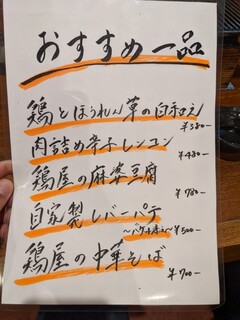 おすすめ一品
鶏とほうれん草の白和え
¥380-
肉詰め辛子レンコン
¥480-
鶏屋の麻婆豆腐
¥780-
自家製レバーパテ
~バケット付~ ¥500-
鶏屋の中華そば
¥700-